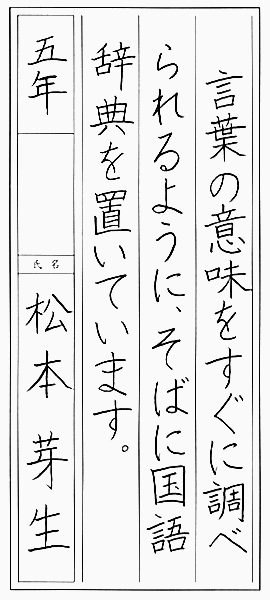 言葉の意味をすぐに調べ
られるように、そばに国語
辞典を置いています。
五年
氏名
松本芽生